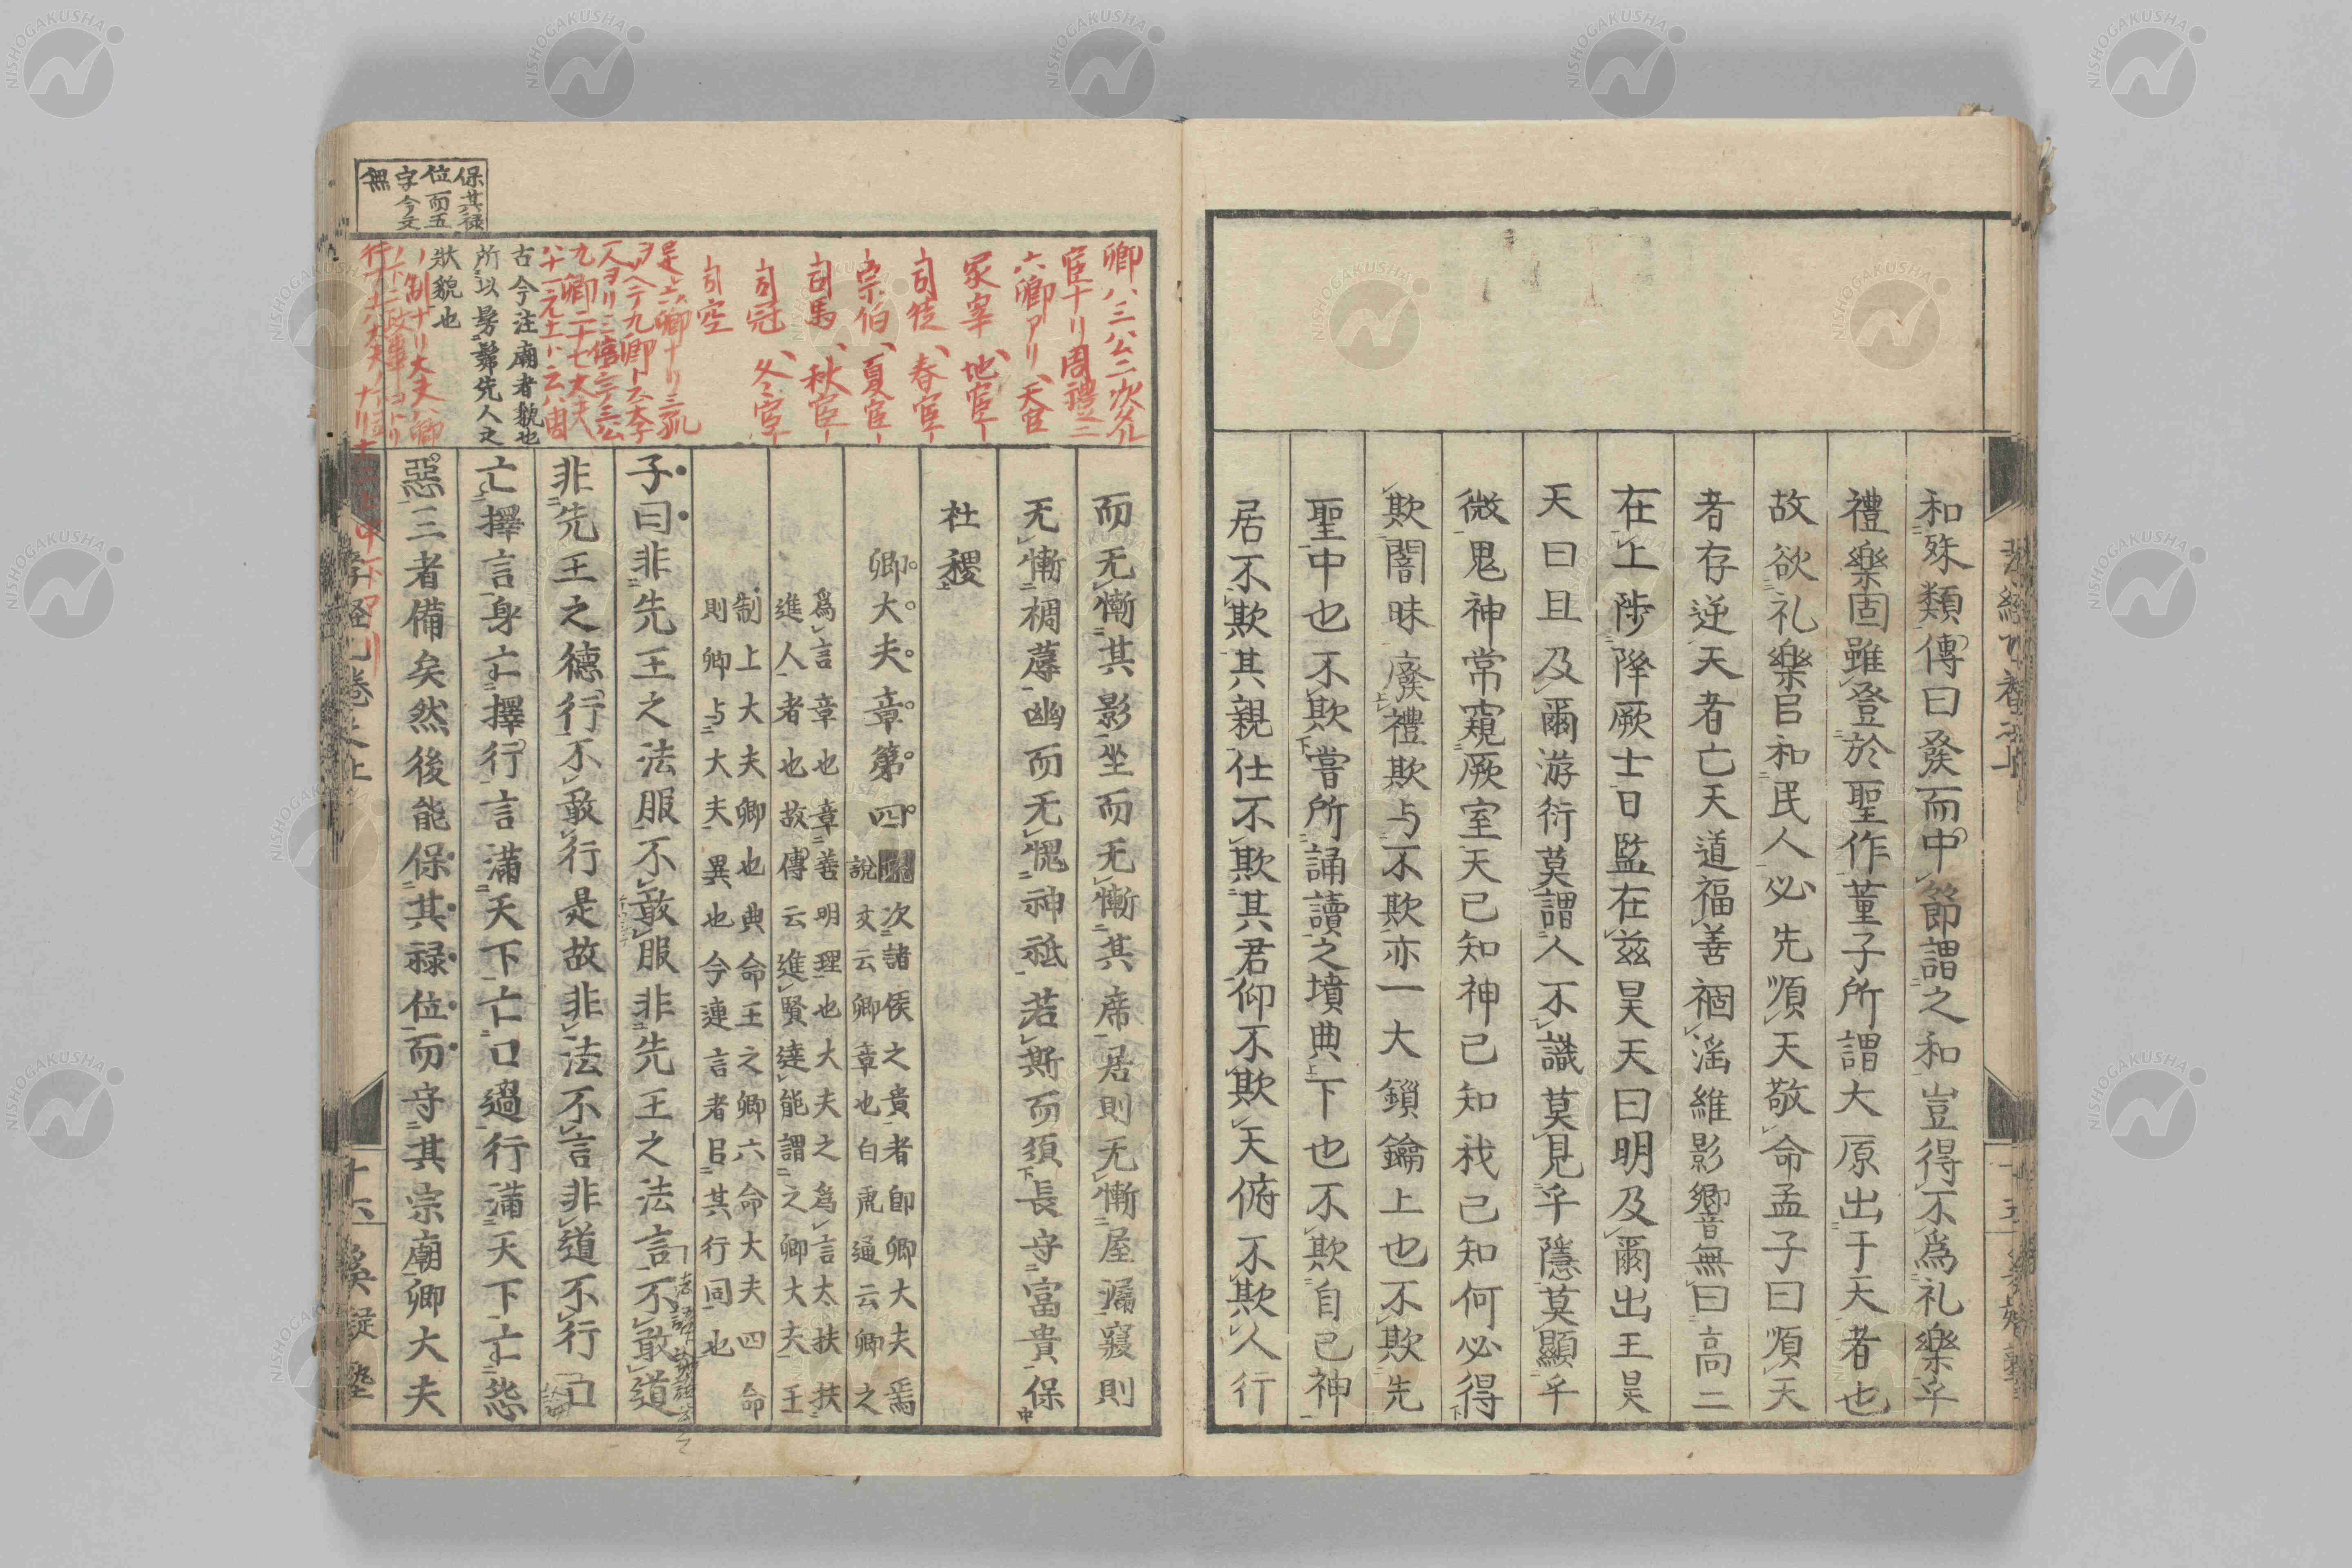 和殊類傳曰發而中節謂之和豈得不爲礼樂乎
禮樂固雖登於聖作董子所謂大原出于天者也
故欲礼樂㠯和民人必先順天敬命孟子曰順天
者存逆天者亡天道福善禍淫維影卿音無曰高二
在上陟降厥士日監在兹昊天曰明及爾出王昊
天曰旦及爾游衍莫謂人不識莫見乎隱莫顯乎
微鬼神常窺厥室天已知神已知我已知何必得
欺闇昧廢禮欺与不欺亦一大鎖鑰上也不欺先
聖中也不欺嘗所誦讀之墳典下也不欺自已神
居不欺其親仕不欺其君仰不欺天俯不欺人行
十五
而无慚其影坐而无慚其席居則无慚屋漏寢則
无慚裯蓐幽而无愧神祇若斯而須長守富貴保
社稷
卿大夫章第四
次諸侯之貴者卽卿大夫焉
說文云卿章也白虎通云卿之
爲言章也章善明理也大夫之爲言太扶扶
進人者也故傳云進賢達能謂之卿大夫王
制上大夫卿也典命王之卿六命大夫四命
則卿与大夫異也今連言者㠯其行同也
子曰非先王之法服不敢服非先王之法言不敢道
非先王之德行不敢行是故非法不言非道不行口
亡擇言身亡擇行言滿天下亡口過行滿天下亡怨
惡三者備矣然後能保其禄位而守其宗廟卿大夫
卿ハ三公ニ次クル
官ナリ周禮ニ
六卿アリ天官
冢宰、地官ー
司徒、春官ー
宗伯、夏官ー
司馬、秋官ー
司冠、冬官ー
司空
是六卿ナリ三孤
古今注廟者貌也
所以髣髴先人之
狀貌也
保其禄
位而五
字今文
無
十六